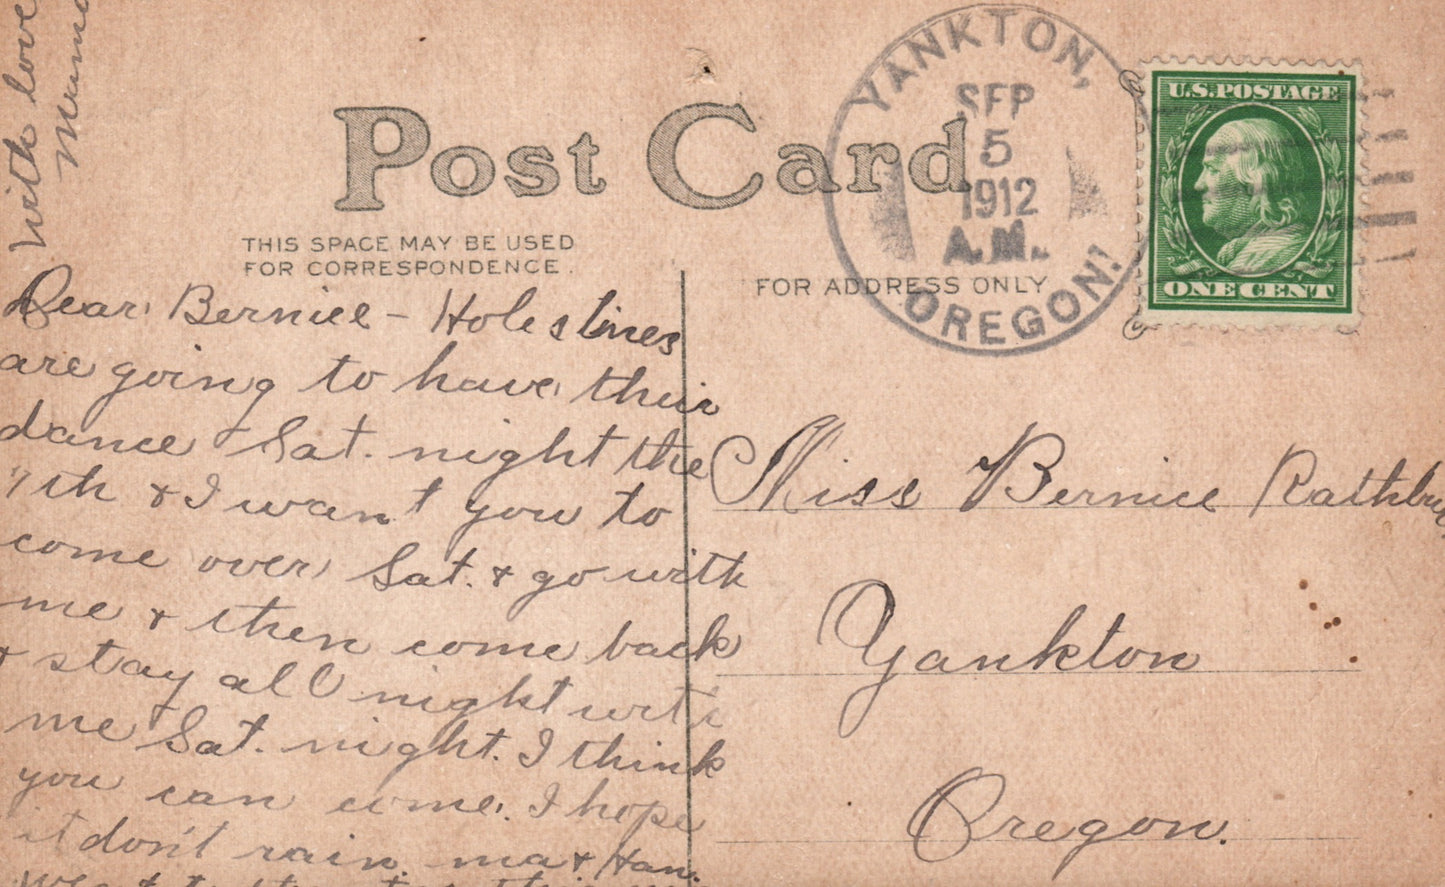 With love
Post Card
THIS SPACE MAY BE USED
FOR CORRESPONDENCE.
FOR ADDRESS ONLY
YANKTON,
SEP
5
1912
A.M.
OREGON
U.S. POSTAGE
ONE CENT
Dear Bernice - Holstines
are going to have their
dance Sat. night the
7th & I want you to
come over Sat. & go with
me & then come back
& stay all night with
me Sat. night. I think
you can come. I hope
it don't rain. ma &
Miss Bernice Rathbu
Yankton
Oregon.